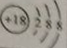 +18 2 8 8